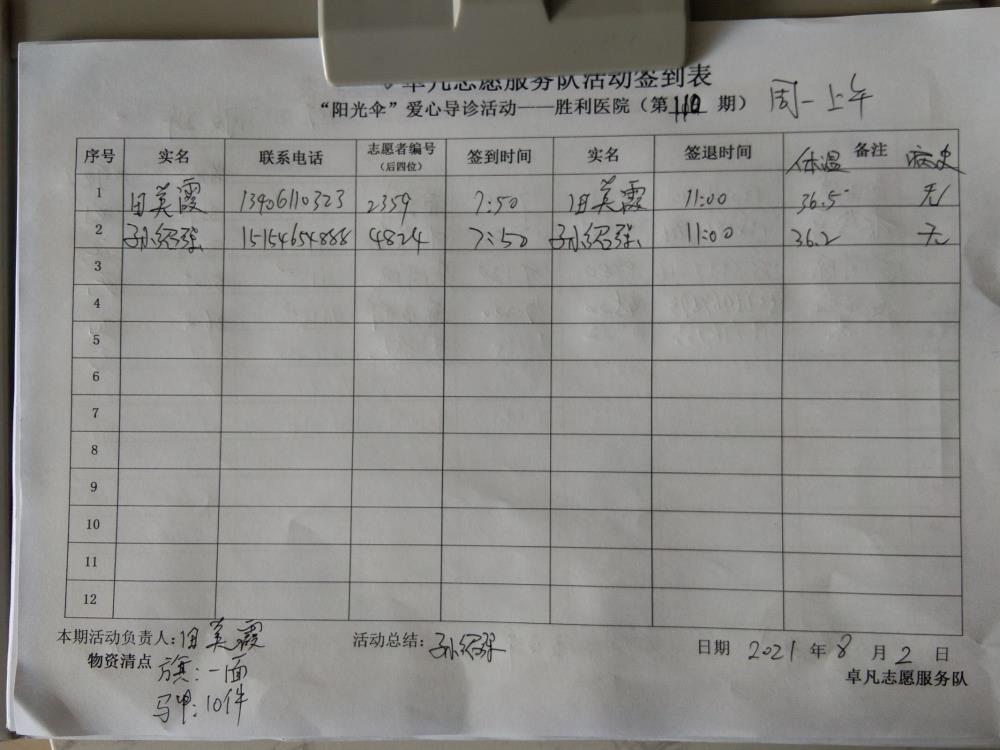 卓凡志愿服务队活动签到表
“阳光伞”爱心导诊活动——胜利医院（第110 期） 周一上午
序号 实名 联系电话 志愿者编号（后四位） 签到时间 实名 签退时间 体温 备注 病史
1 田美霞 13406110323 2359 7:50 田美霞 11:00 36.5 无
2 孙绍强 15154654888 4824 7:50 孙绍强 11:00 36.2 无
3
4
5
6
7
8
9
10
11
12
本期活动负责人：田美霞 活动总结：孙绍强 日期 2021 年 8 月 2 日
物资清点 旗：一面 卓凡志愿服务队
马甲：10件